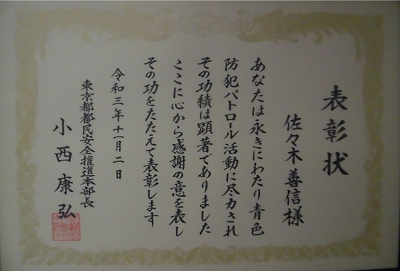 表彰状
佐々木善信様
あなたは永きにわたり青色
防犯パトロール活動に尽力され
その功績は顕著でありました
ここに心から感謝の意を表し
その功をたたえて表彰します
令和三年十一月二日
東京都都民安全推進本部長
小西康弘